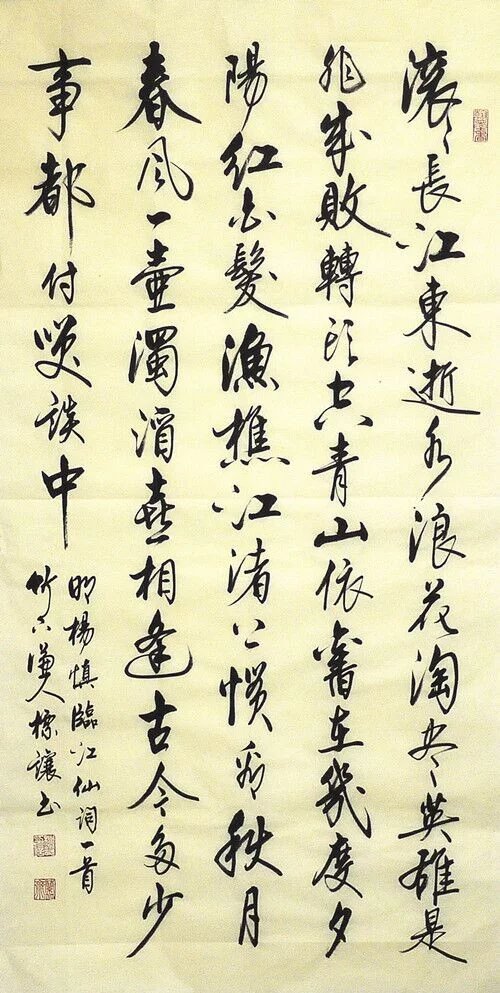 滚〻長江東逝水浪花淘尽英雄是
非成敗轉头空青山依舊在幾度夕
陽紅白髮漁樵江渚上慣看秋月
春风一壺濁酒喜相逢古今多少
事都付笑談中
明楊慎臨江仙詞一首
竹下人讓书